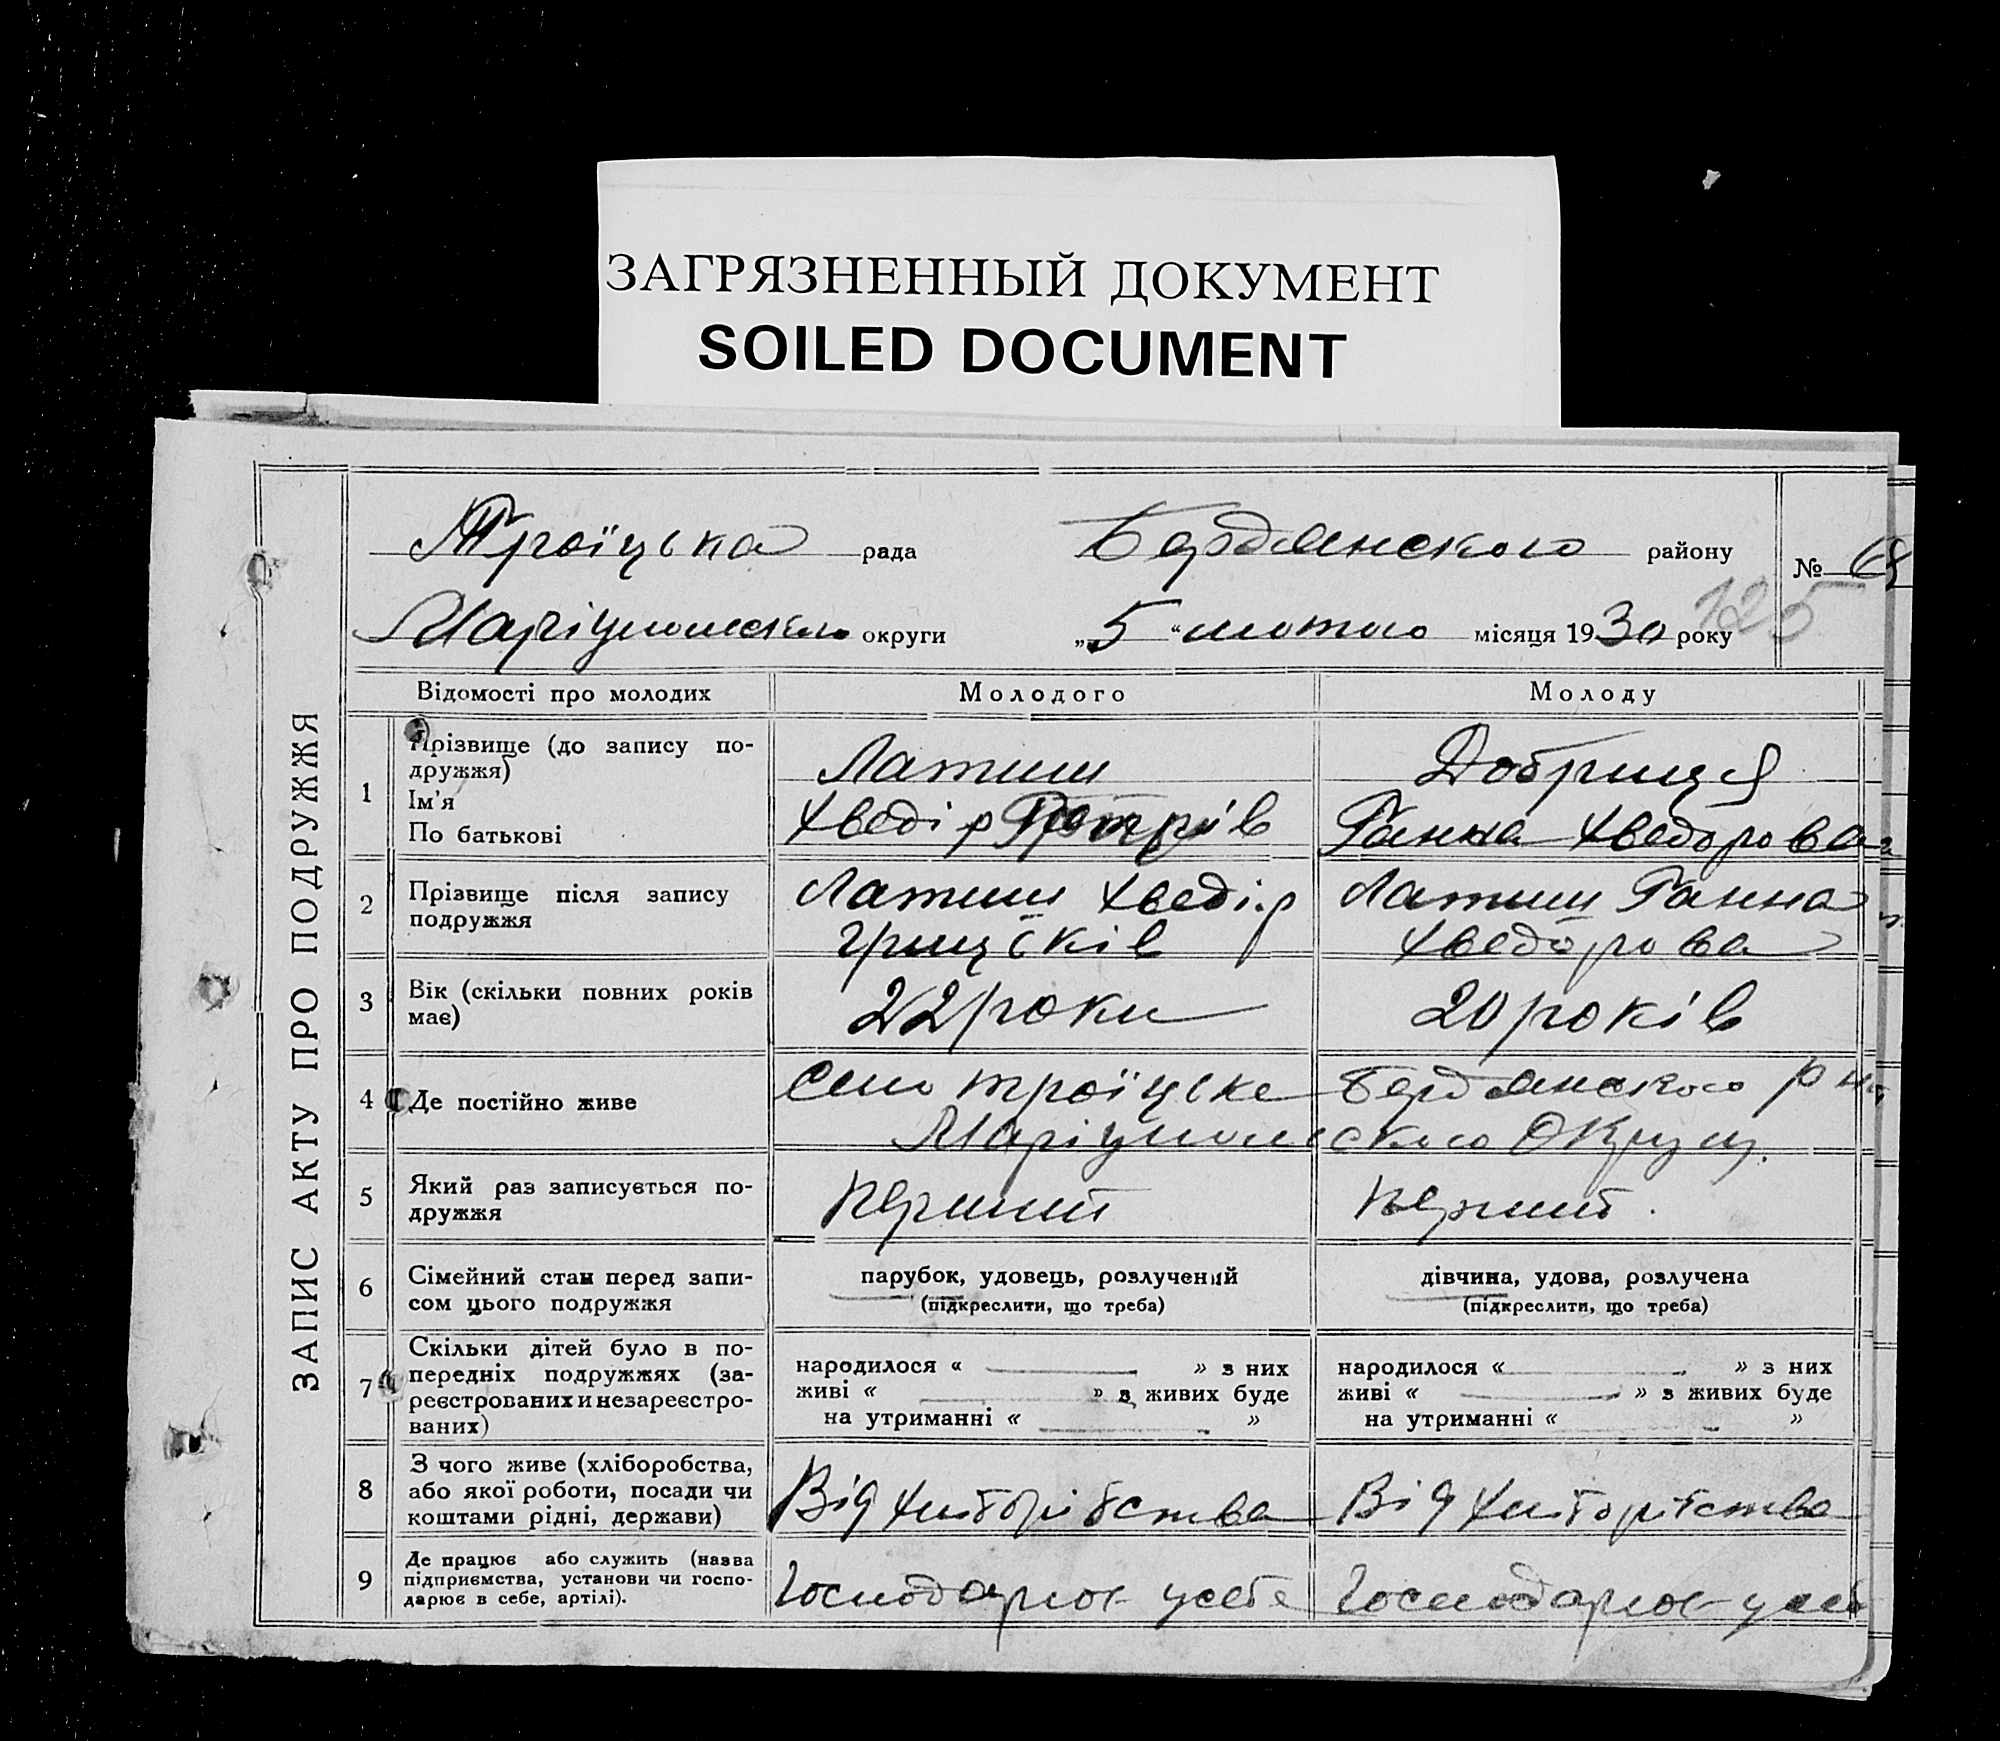 ЗАГРЯЗНЕННЫЙ ДОКУМЕНТ
SOILED DOCUMENT
ЗАПИС АКТУ ПРО ПОДРУЖЖЯ
Троїцька рада Бердянского району № 68
Маріупольского округи „5“ лютого місяця 1930 року
125
Відомості про молодих Молодого Молоду
1 Прізвище (до запису по-
дружжя)
Ім'я
По батькові
Латиш
Хведір
Добриця
Ганна Хведорова
2 Прізвище після запису
подружжя
Латиш Хведір
Грицьків
Латиш Ганна
Хведорова
3 Вік (скільки повних років
має)
22 роки
20 років
4 Де постійно живе
Село Троїцьке Бердянского р на
Маріупольского Округи.
5 Який раз записується по-
дружжя
Перший
Перший.
6 Сімейний стан перед запи-
сом цього подружжя
парубок, удовець, розлучений
(підкреслити, що треба)
дівчина, удова, розлучена
(підкреслити, що треба)
7 Скільки дітей було в по-
передніх подружжях (за-
реєстрованих и незареєстро-
ваних)
народилося « » з них
живі « » з живих буде
на утриманні « »
народилося « » з них
живі « » з живих буде
на утриманні « »
8 З чого живе (хліборобства,
або якої роботи, посади чи
коштами рідні, держави)
Від хліборібства
Від хліборібства
9 Де працює або служить (назва
підприємства, установи чи госпо-
дарює в себе, артілі).
Господарює усебе
Господарює усебе